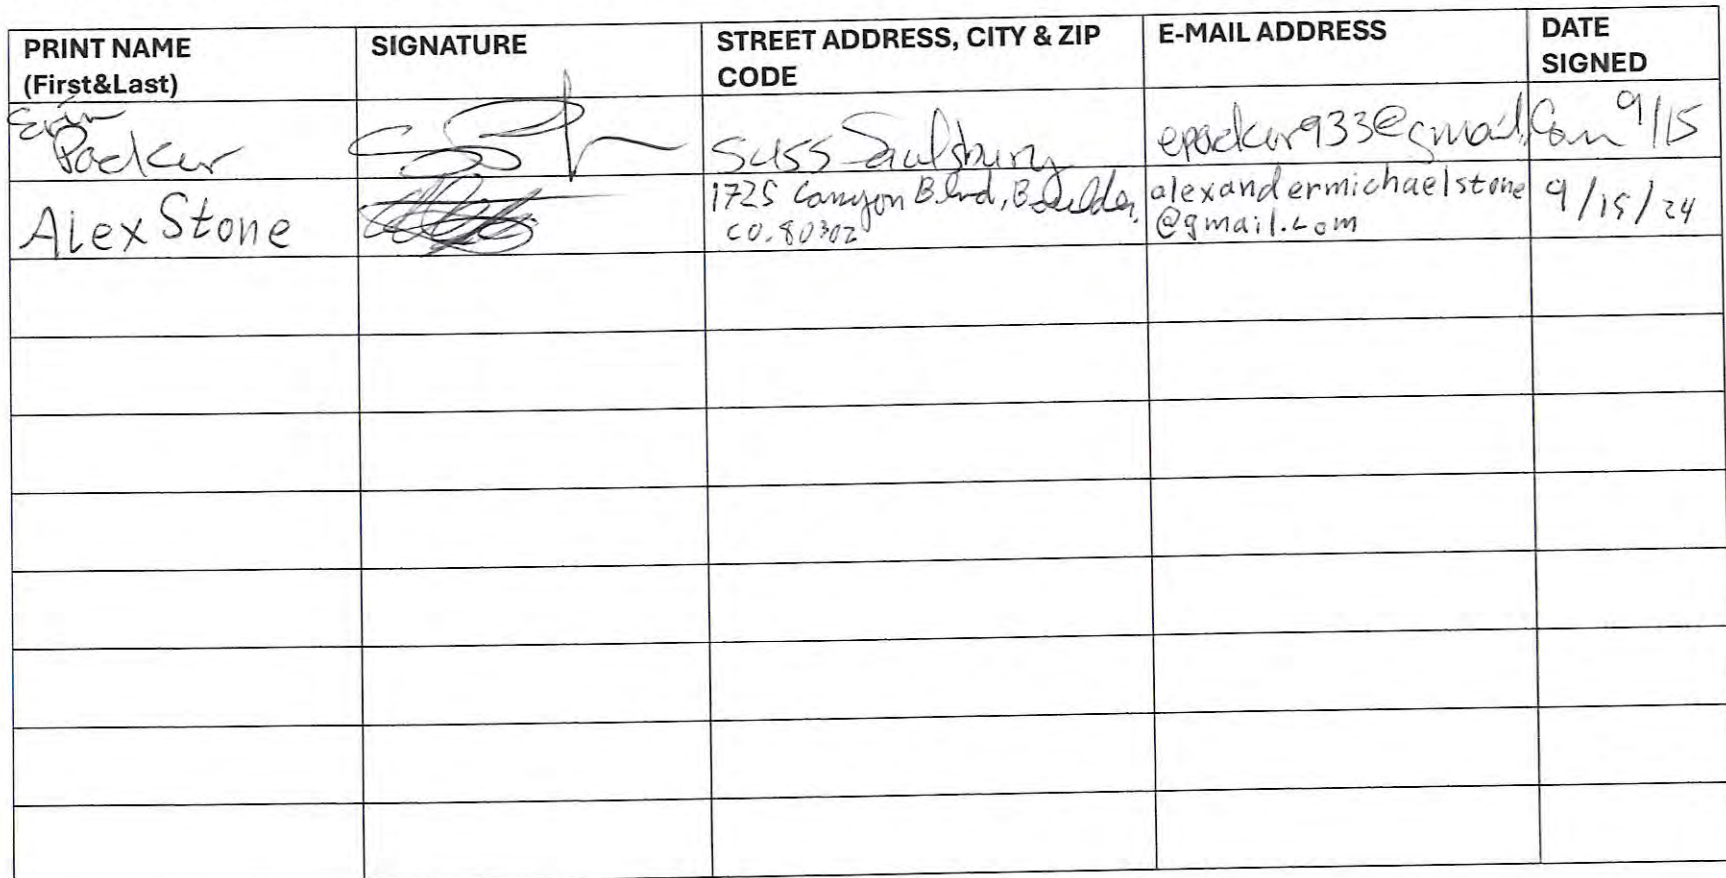 PRINT NAME
(First&Last)
SIGNATURE
STREET ADDRESS, CITY & ZIP
CODE
E-MAIL ADDRESS
DATE
SIGNED
Erin
Packer
5455 Saulsbury
epacker933@gmail.com
9/15
Alex Stone
1725 Canyon Blvd, Boulder,
CO. 80302
alexandermichaelstone
@gmail.com
9/15/24